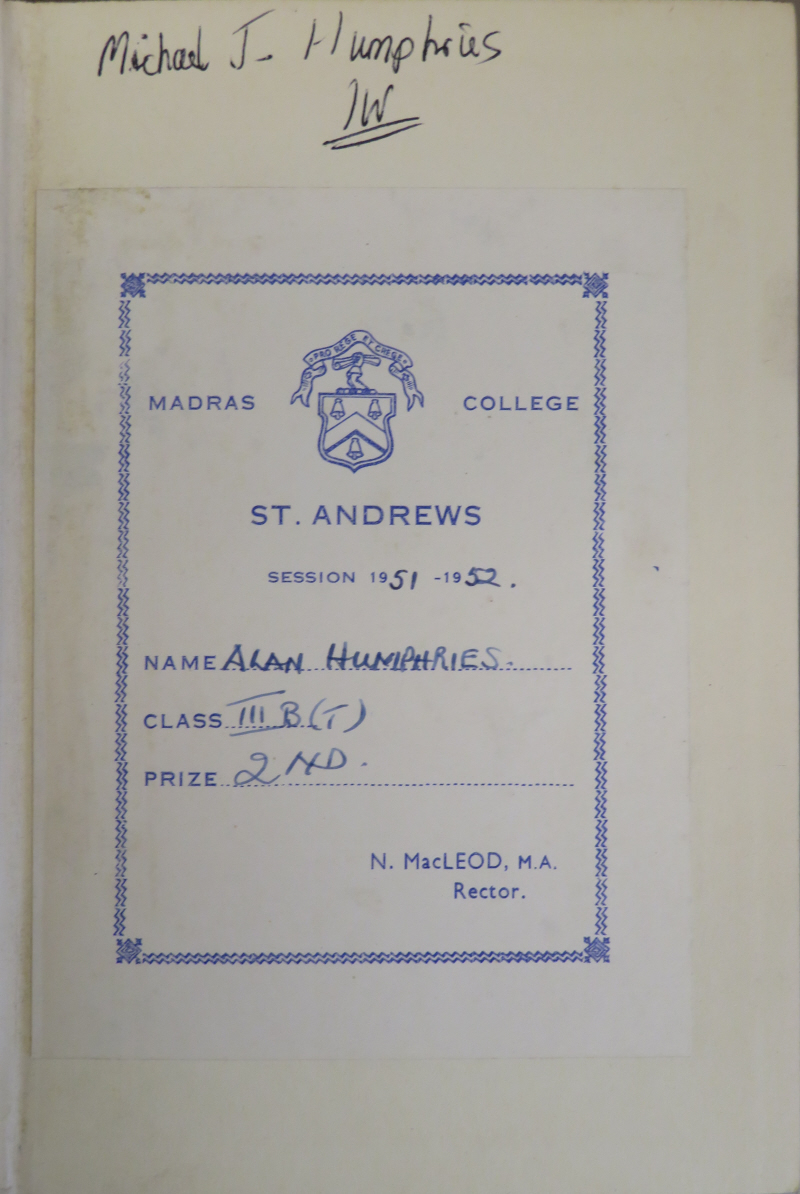 Michael J. Humphries
1W
PRO REGE ET GREGE
MADRAS COLLEGE
ST. ANDREWS
SESSION 1951 -1952.
NAME ALAN HUMPHRIES.
CLASS III B (T)
PRIZE 2ND.
N. MacLEOD, M.A.
Rector.